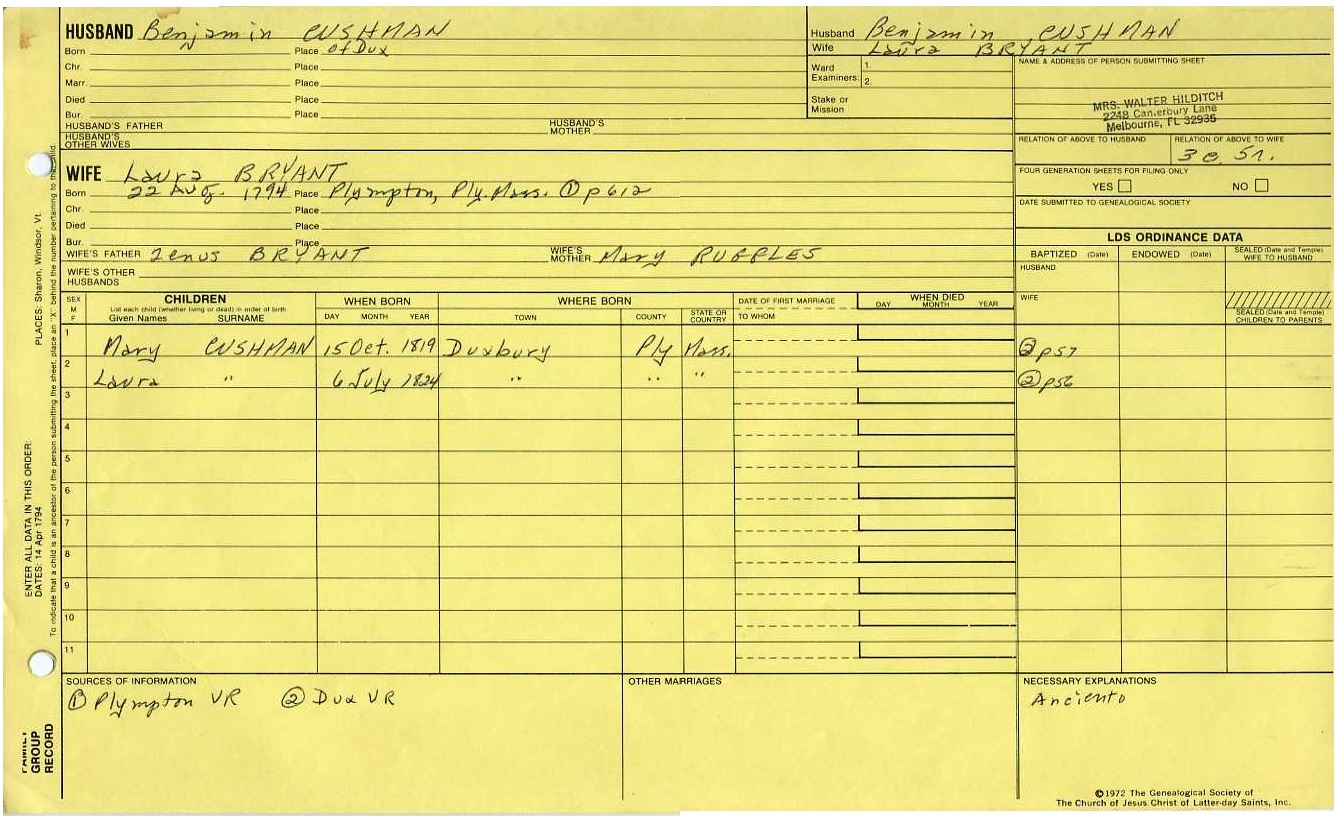 HUSBAND Benjamin CUSHMAN
Born Place of Dux
Chr. Place
Marr. Place
Died Place
Bur. Place
HUSBAND'S FATHER HUSBAND'S MOTHER
HUSBAND'S OTHER WIVES
Husband Benjamin CUSHMAN
Wife Laura BRYANT
Ward Examiners: 1.
2.
Stake or Mission
NAME & ADDRESS OF PERSON SUBMITTING SHEET
MRS. WALTER HILDITCH
2248 Canterbury Lane
Melbourne, FL 32935
RELATION OF ABOVE TO HUSBAND RELATION OF ABOVE TO WIFE
3 c. 5r.
FOUR GENERATION SHEETS FOR FILING ONLY
YES NO
DATE SUBMITTED TO GENEALOGICAL SOCIETY
WIFE Laura BRYANT
Born 22 Aug. 1794 Place Plympton, Ply. Mass. ① p612
Chr. Place
Died Place
Bur. Place
WIFE'S FATHER Zenus BRYANT WIFE'S MOTHER Mary RUGGLES
WIFE'S OTHER HUSBANDS
LDS ORDINANCE DATA
BAPTIZED (Date) ENDOWED (Date) SEALED (Date and Temple) WIFE TO HUSBAND
HUSBAND
WIFE
SEALED (Date and Temple) CHILDREN TO PARENTS
SEX M F
CHILDREN
List each child (whether living or dead) in order of birth
Given Names SURNAME
WHEN BORN
DAY MONTH YEAR
WHERE BORN
TOWN COUNTY STATE OR COUNTRY
DATE OF FIRST MARRIAGE
TO WHOM
WHEN DIED
DAY MONTH YEAR
1 Mary CUSHMAN 15 Oct. 1819 Duxbury Ply Mass. ② p57
2 Laura " 6 July 1824 " " " ② p56
3
4
5
6
7
8
9
10
11
SOURCES OF INFORMATION
① Plympton VR ② Dux VR
OTHER MARRIAGES
NECESSARY EXPLANATIONS
©1972 The Genealogical Society of
The Church of Jesus Christ of Latter-day Saints, Inc.
PLACES: Sharon, Windsor, Vt.
ENTER ALL DATA IN THIS ORDER:
DATES: 14 Apr 1794
To indicate that a child is an ancestor of the person submitting the sheet, place an "X" behind the number pertaining to that child.
FAMILY GROUP RECORD